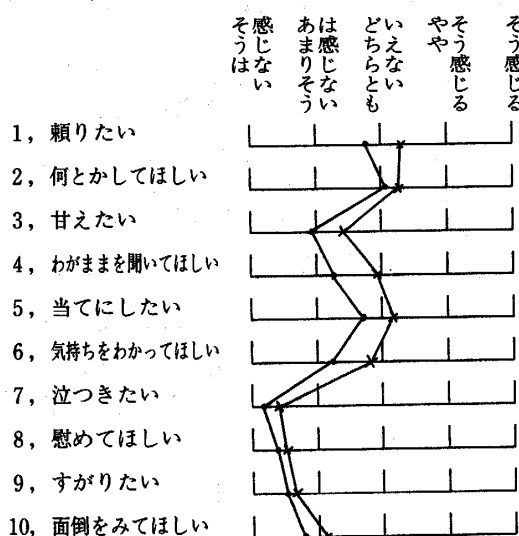 そう感じる
やや
そう感じる
どちらとも
いえない
あまりそう
は感じない
そうは
感じない
1, 頼りたい
2, 何とかしてほしい
3, 甘えたい
4, わがままを聞いてほしい
5, 当てにしたい
6, 気持ちをわかってほしい
7, 泣つきたい
8, 慰めてほしい
9, すがりたい
10, 面倒をみてほしい